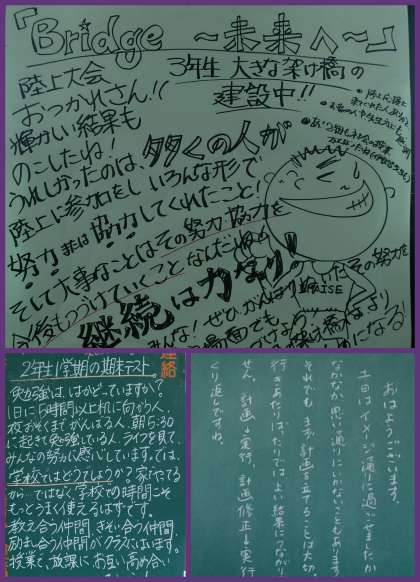 「Bridge ～未来へ～」
3年生 大きな架け橋の
建設中!!
陸上大会
おつかれさん!!
輝かしい結果も
のこしたね!
うれしかったのは、多くの人が
陸上に参加をし いろんな形で
努力または協力してくれたこと!
そして大事なことはその努力・協力を
今後もつづけていくことなんだ
継続は力なり!
連絡
2年生1学期の期末テスト。
勉強は、はかどっていますか。
1日に5時間以上机に向かう人、
夜おそくまでがんばる人、朝5:30
に起きて勉強している人。ライフを見て、
みんなの努力に感心しています。では、
学校ではどうでしょうか?家でたてる
から…ではなく、学校での時間こそ
もっとうまく使えるはずです。
教え合う仲間、きそい合う仲間
励まし合う仲間がクラスにはいます。
授業で、放課に、お互い高め合い
おはようございます。
土日はイメージ通りに過ごせましたか
なかなか思い通りにいかないこともあります
それでも、まず計画を立てることは大切。
行きあたりばったりではよい結果につながりま
せん。計画→実行、計画修正→実行
くり返しですね。